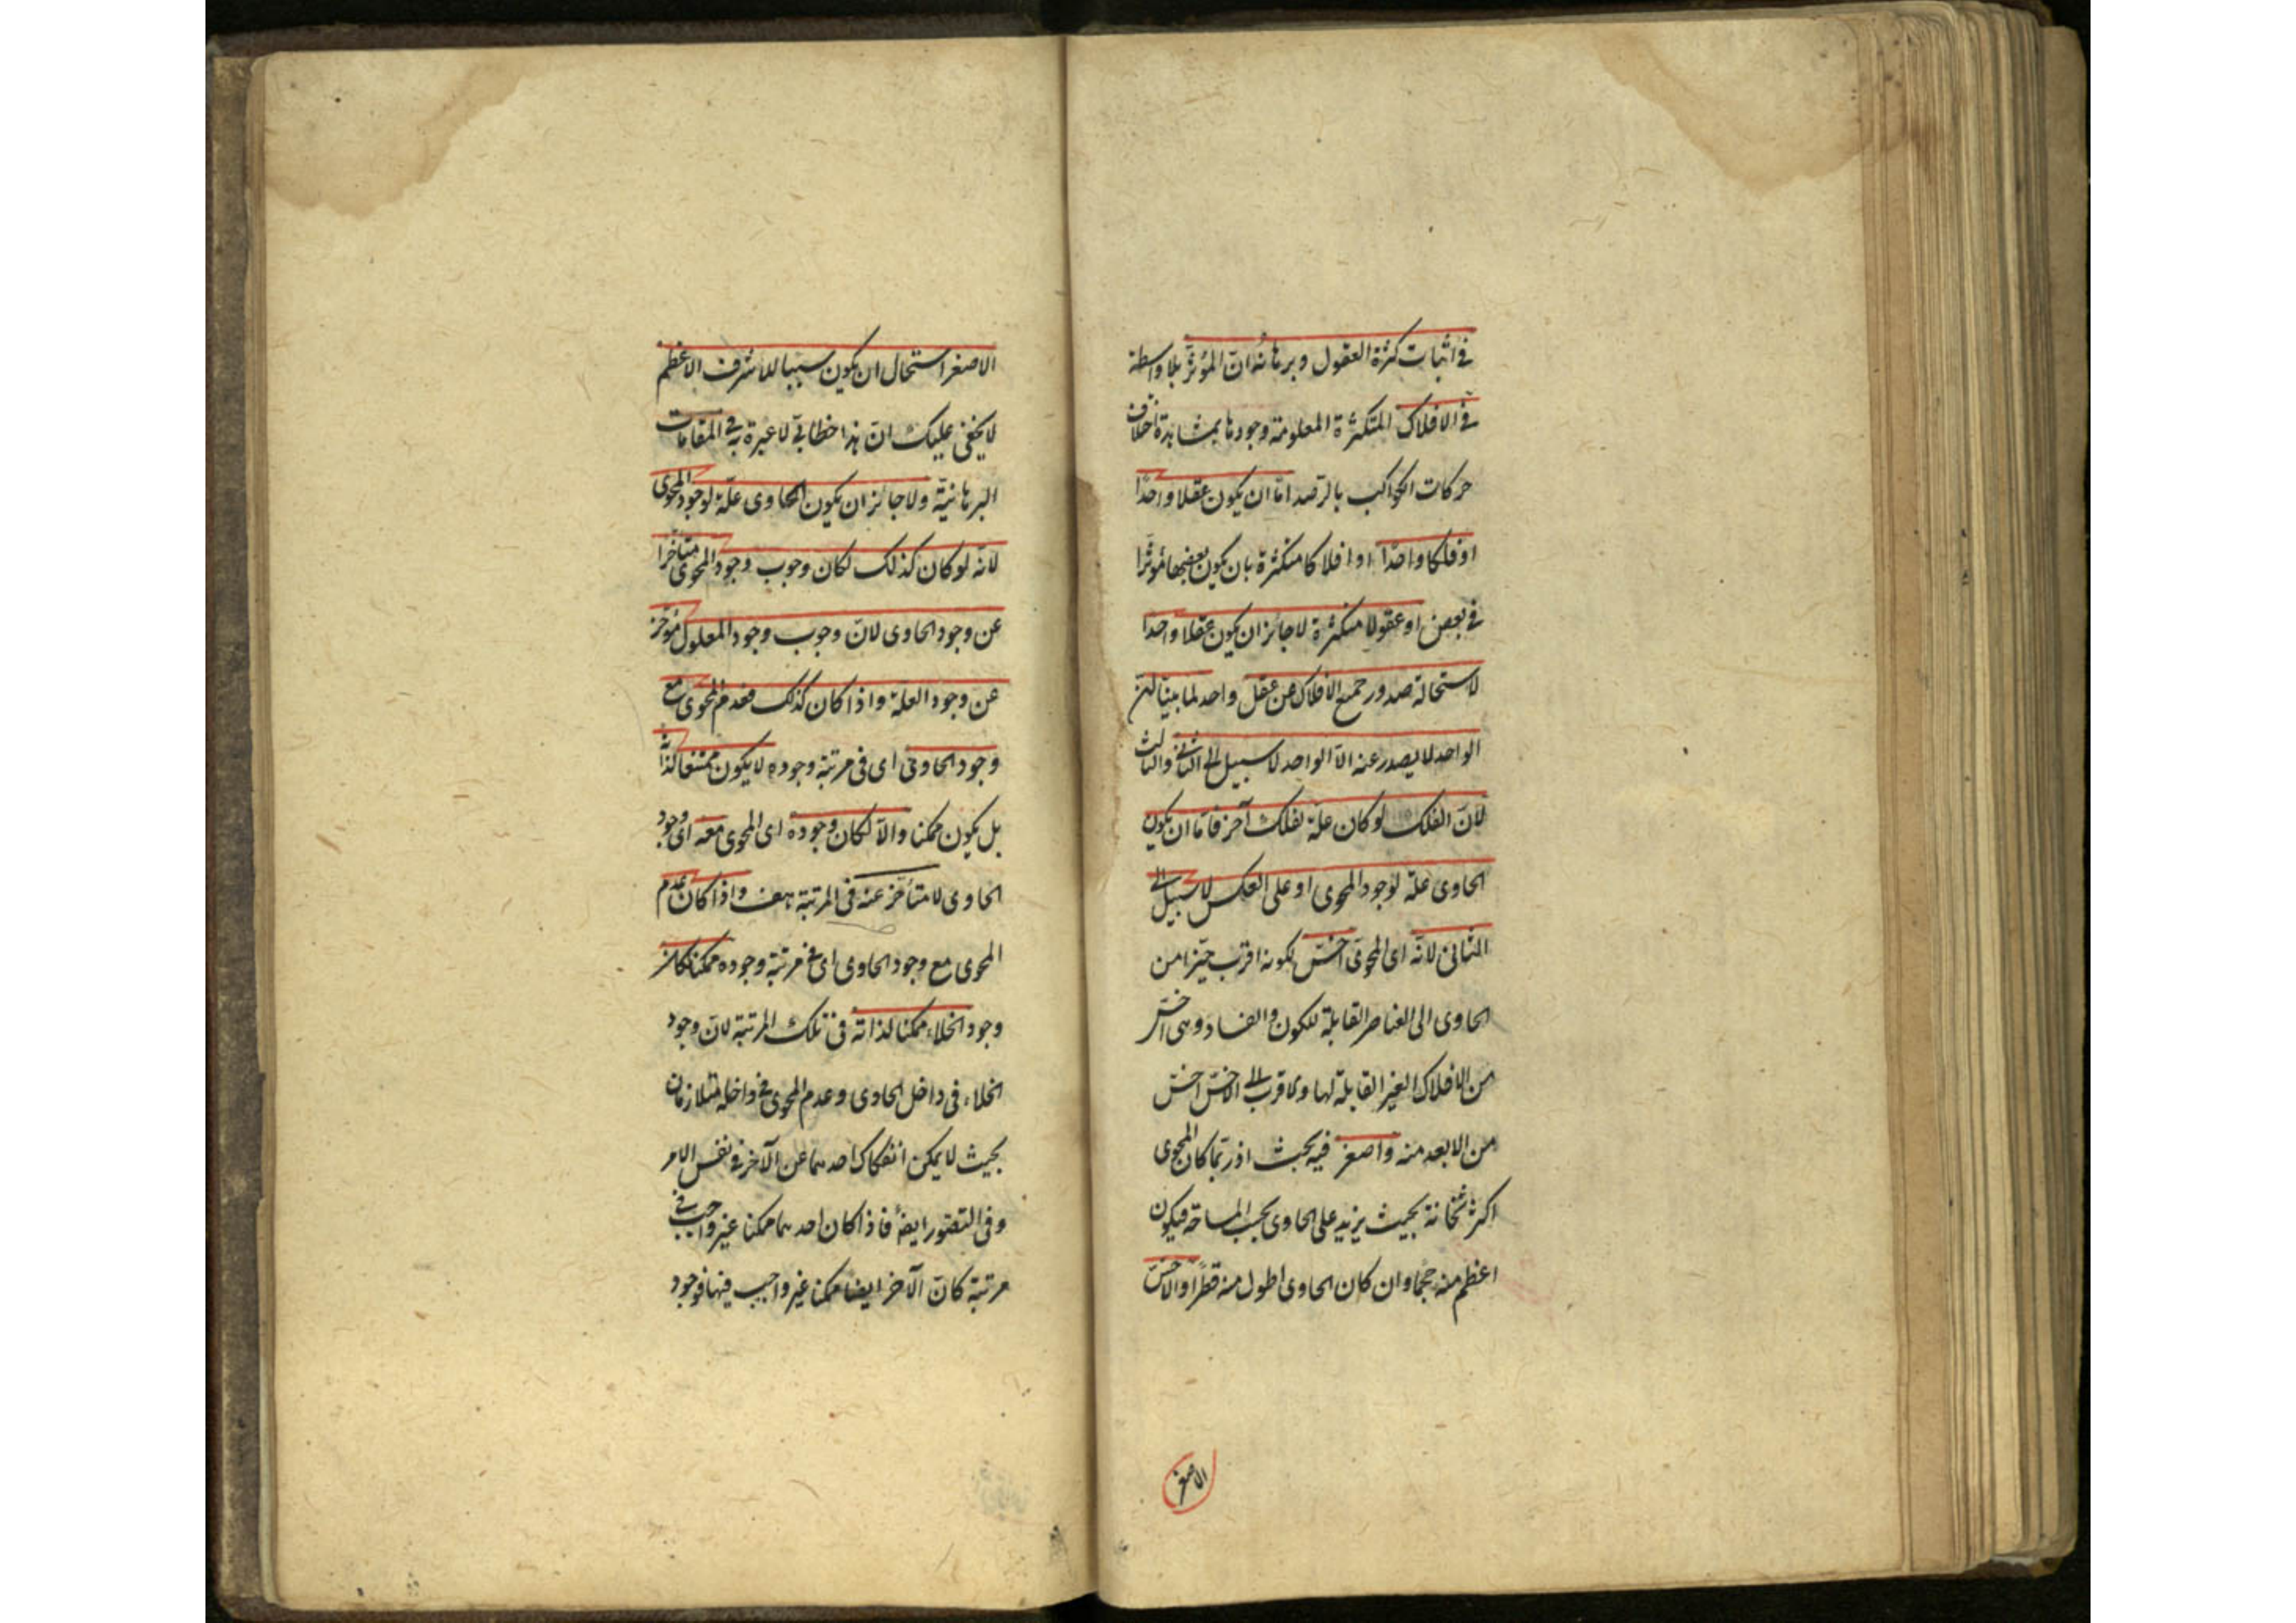 في اثبات كثرة العقول وبرهانه ان المؤثر بلا واسطة
في الافلاك المتكثرة المعلومة وجودها بمشاهدة اختلاف
حركات الكواكب بالرصد اما ان يكون عقلا واحدا
او فلكا واحدا او افلاكا متكثرة بان يكون بعضها مؤثرا
في بعض او عقولا متكثرة لا جائز ان يكون عقلا واحدا
لاستحالة صدور جميع الافلاك من عقل واحد لما بينا ان
الواحد لا يصدر عنه الا الواحد لا سبيل الى الثاني والثالث
لان الفلك لو كان علة لفلك آخر فاما ان يكون
الحاوى علة لوجود المحوى او على العكس لا سبيل الى
الثانى لانه اى المحوى اخس لكونه اقرب حيزا من
الحاوى الى العناصر القابلة للكون والفساد وهى اخس
من الافلاك الغير القابلة لها والاقرب الى الاخس اخس
من الابعد منه واصغر فيه بحث اذ ربما كان المحوى
اكثر ثخانة بحيث يزيد على الحاوى بحسب المساحة فيكون
اعظم منه حجما وان كان الحاوى اطول منه قطرا والاخس
الاصغر
الاصغر استحال ان يكون سببا للاشرف الاعظم
لا يخفى عليك ان هذا خطابي لا عبرة به في المقامات
البرهانية ولا جائز ان يكون الحاوى علة لوجود المحوى
لانه لو كان كذلك لكان وجوب وجود المحوى متأخرا
عن وجود الحاوى لان وجوب وجود المعلول مؤخر
عن وجود العلة واذا كان كذلك فعدم المحوى مع
وجود الحاوى اى فى مرتبة وجوده لا يكون ممتنعا لذاته
بل يكون ممكنا والا لكان وجوده اى المحوى معه اى وجود
الحاوى لا متأخر عنه فى المرتبة هف واذا كان عدم
المحوى مع وجود الحاوى اى في مرتبة وجوده ممكنا كان
وجود الخلاء ممكنا لذاته فى تلك المرتبة لان وجود
الخلاء فى داخل الحاوى وعدم المحوى في داخله متلازمان
بحيث لا يمكن انفكاك احدهما عن الآخر في نفس الامر
وفى التصور ايضا فاذا كان احدهما ممكنا غير واجب في
مرتبة كان الآخر ايضا ممكنا غير واجب فيها فوجود